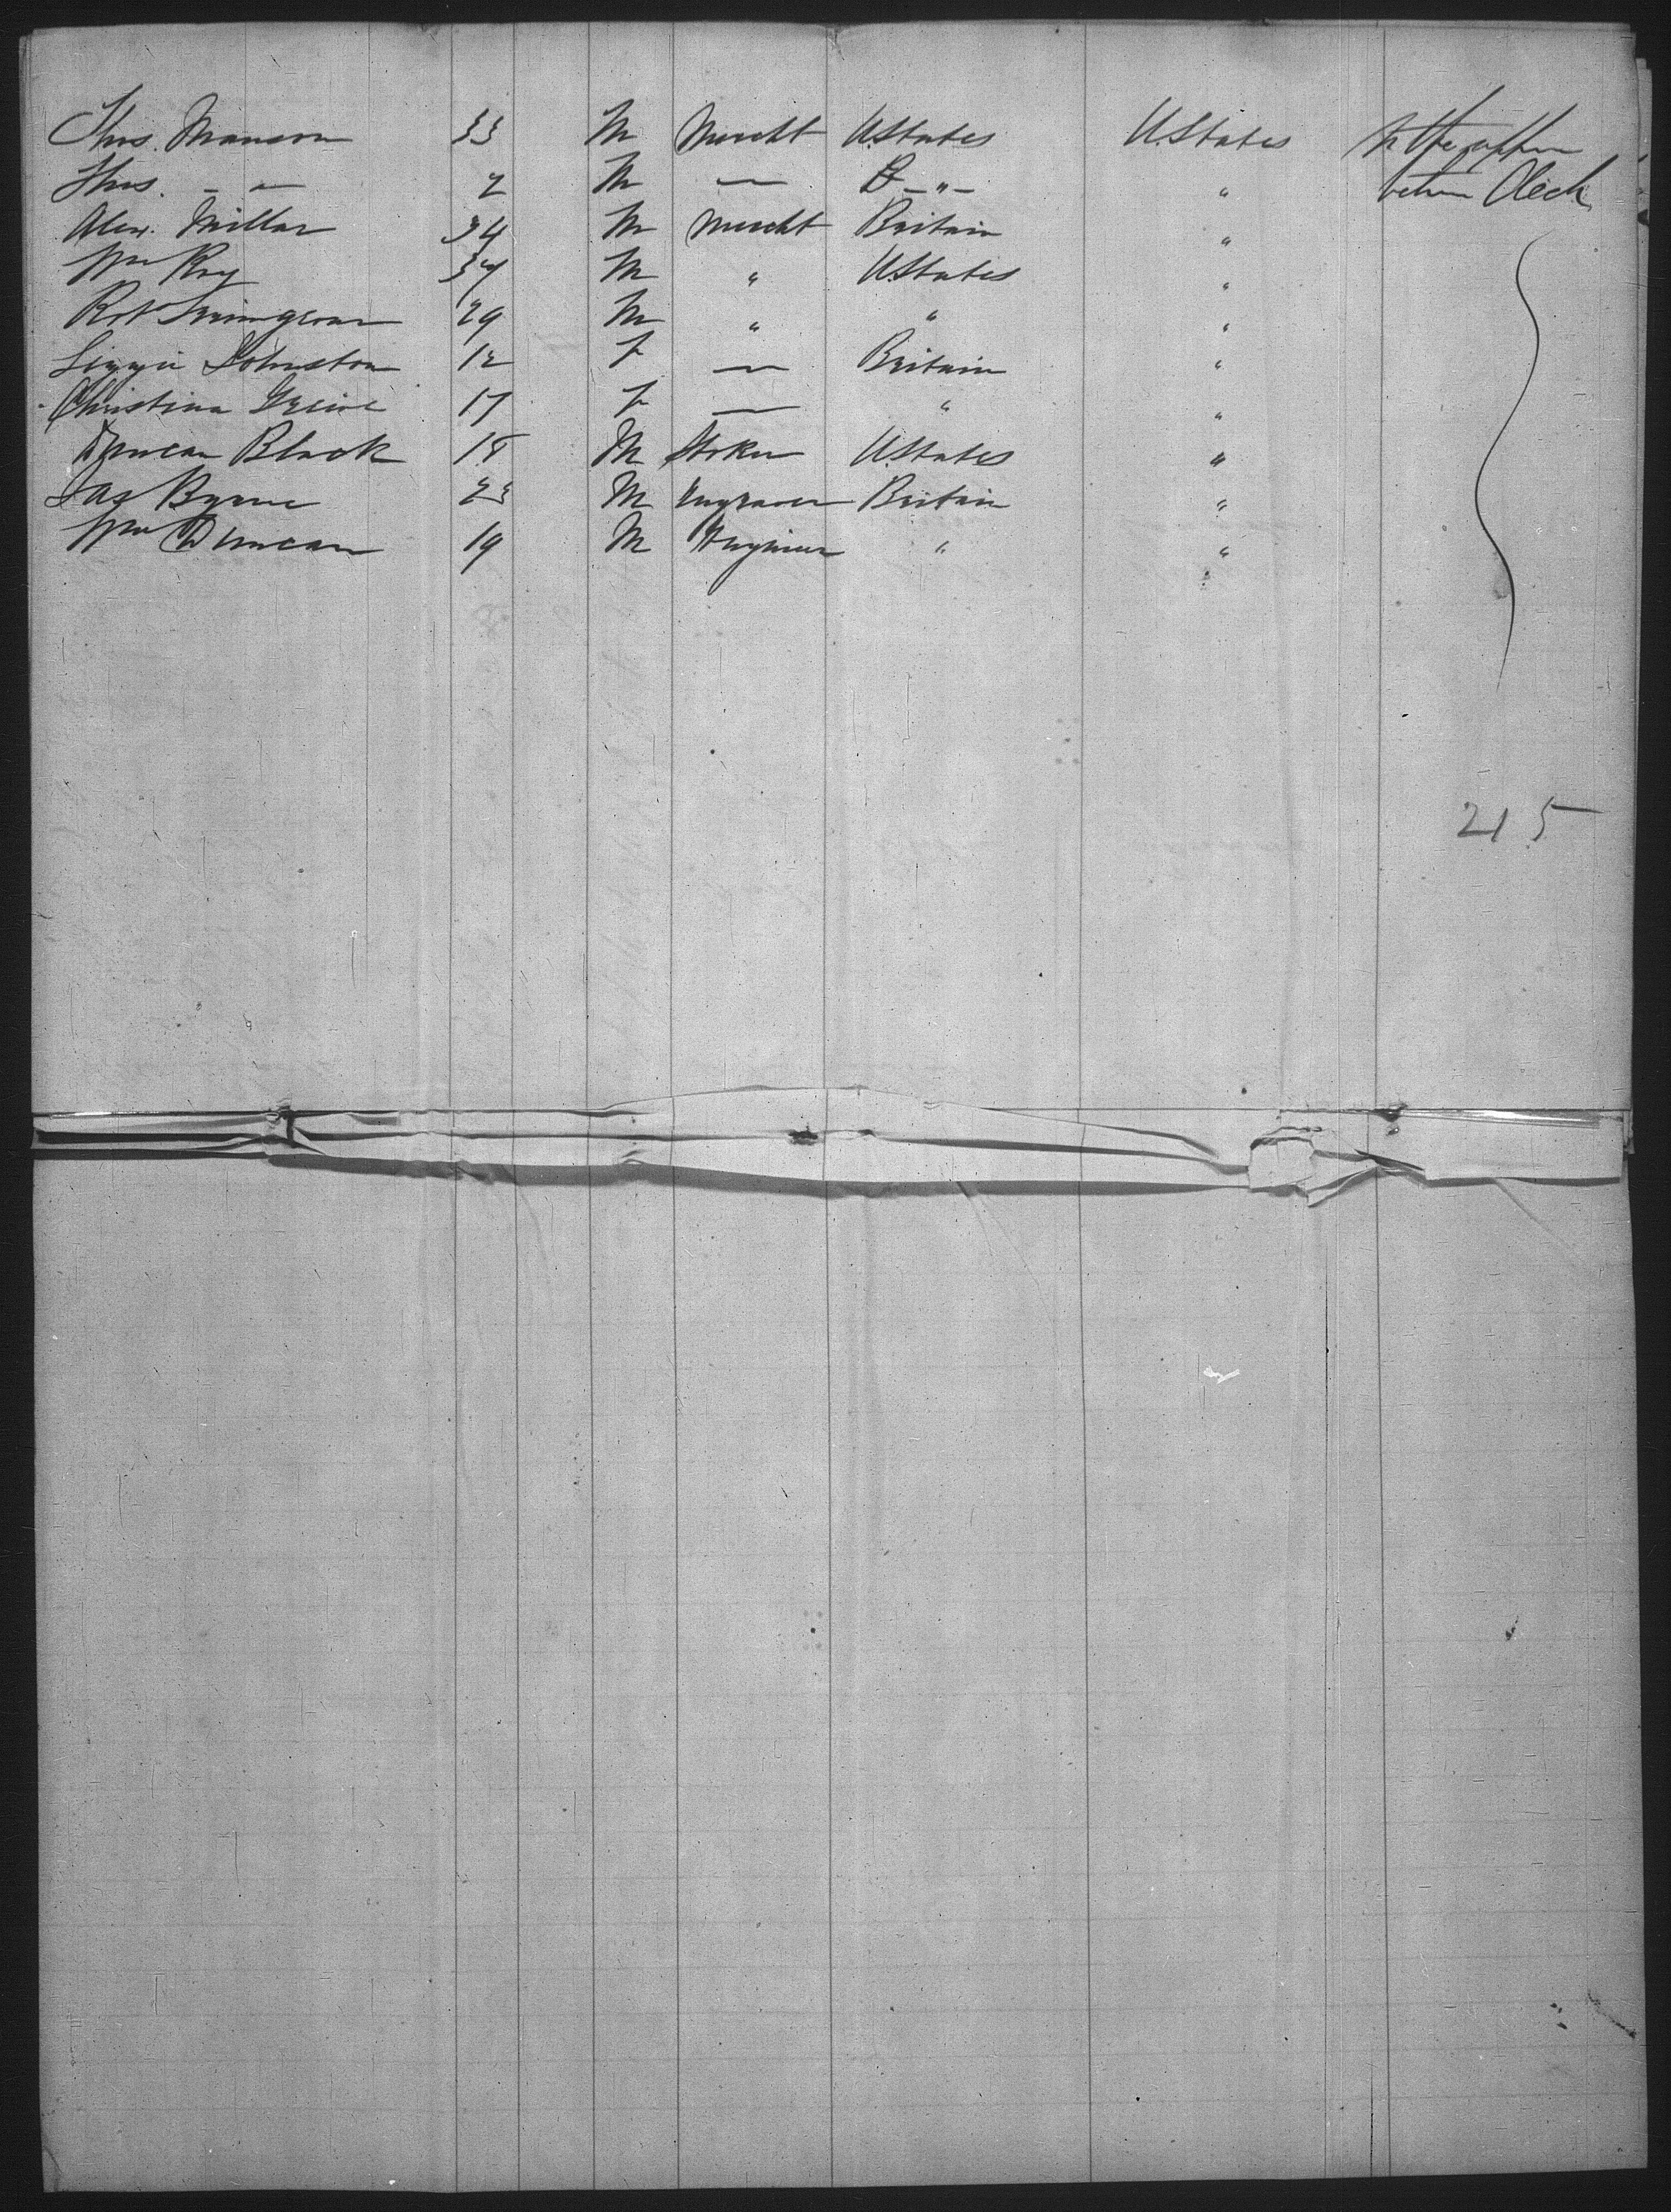 Thos. Manson 33 M Mercht U.States U.States In the upper
Thos. - " - 2 M — - " - " between Deck
Alex. Millar 34 M Mercht Britain "
Wm Roy 34 M " U.States "
Robt 29 M " " "
Lizzie Johnston 12 F — Britain "
Christina Greive 17 F — " "
Duncan Black 18 M Stoker U.States "
Jas Byrne 23 M Engraver Britain "
Wm Duncan 19 M Engineer " "
215